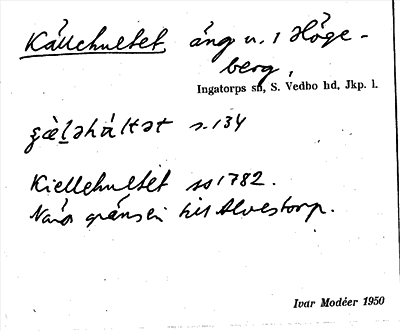 Källehultet, äng u. 1 Höge-
berg,
Ingatorps sn, S. Vedbo hd, Jkp. l.
s. 134
Kiellehultet ss 1782.
Nära gränsen till Alvestorp.
Ivar Modéer 1950